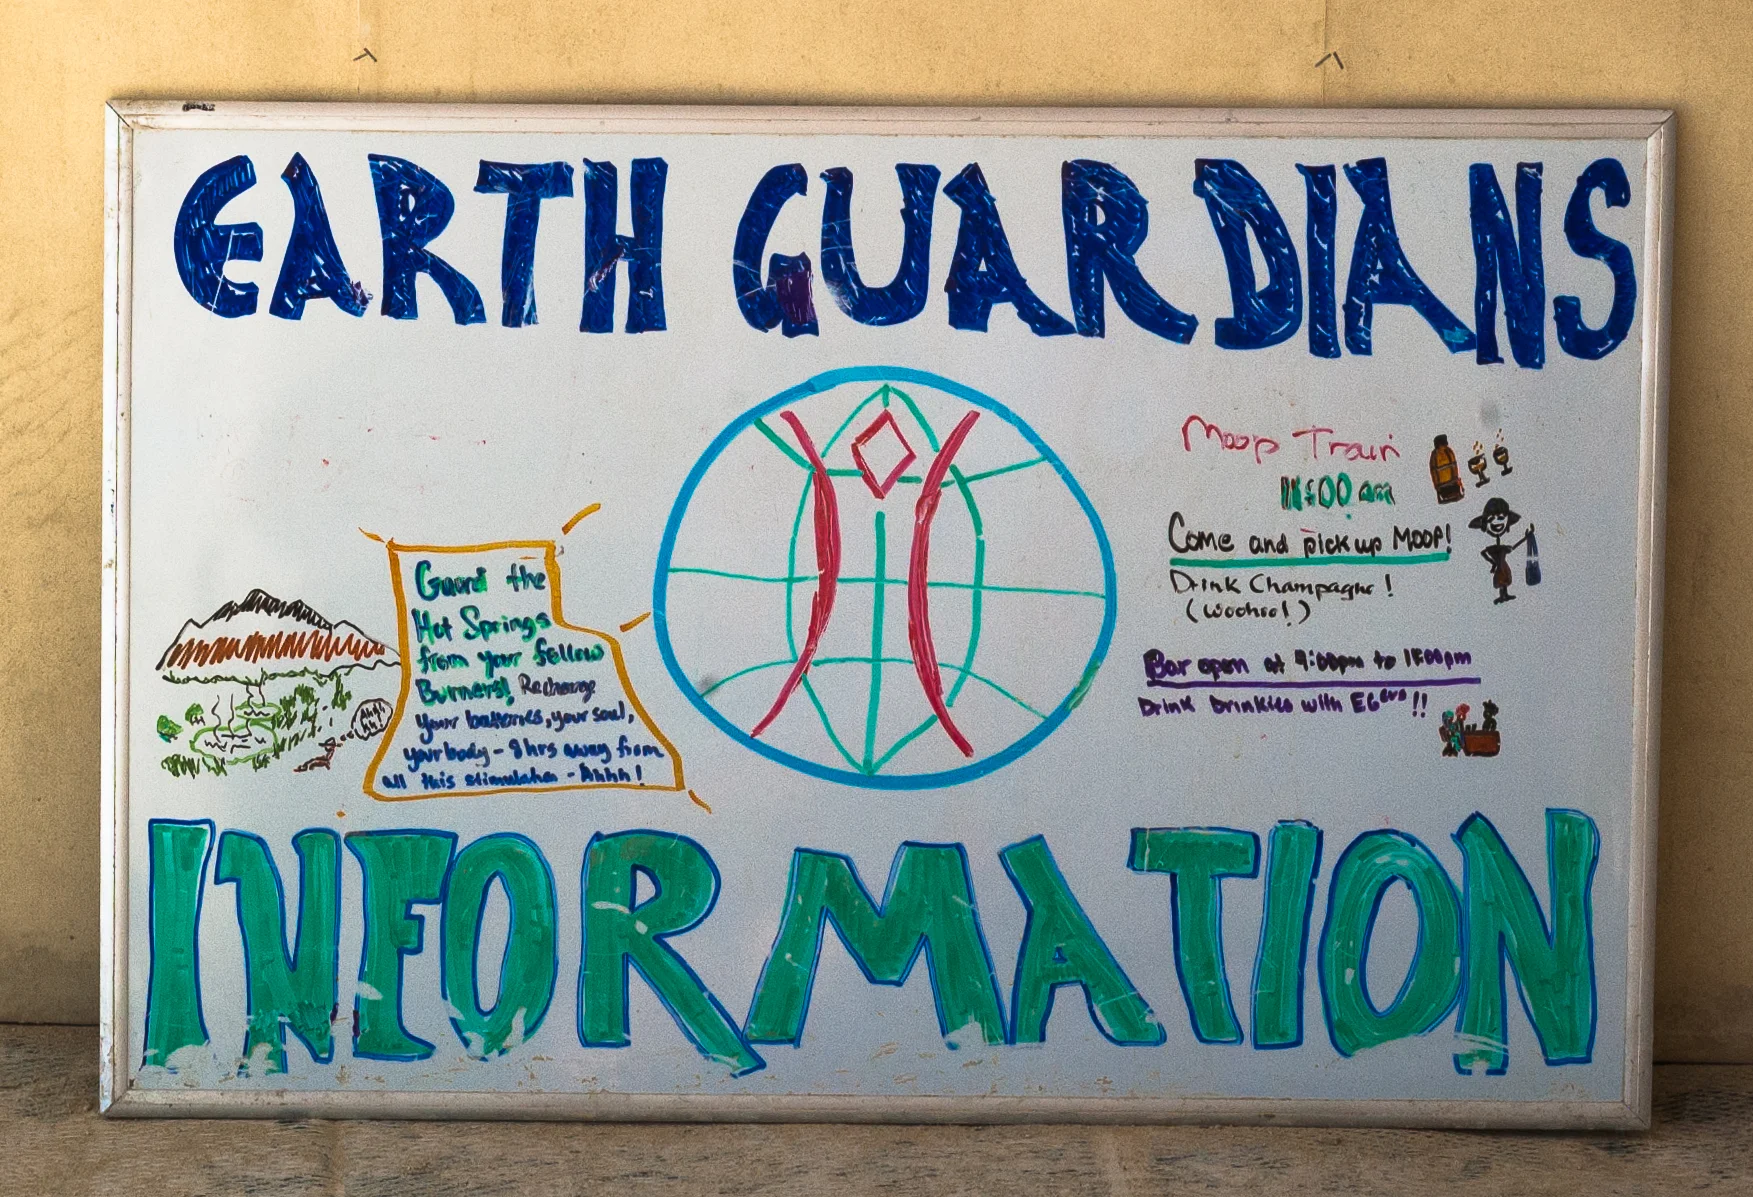 EARTH GUARDIANS
Moop Train
11:00 am
Come and pick up MOOP!
Drink Champagne!
(woohoo!)
Bar open at 9:00pm to 11:00pm
Drink Drinkies with EG ers!!
Guard the
Hot Springs
from your fellow
Burners! Recharge
your batteries, your soul,
your body - 8 hrs away from
all this stimulation - Ahhh!
Ahh
hh!
INFORMATION